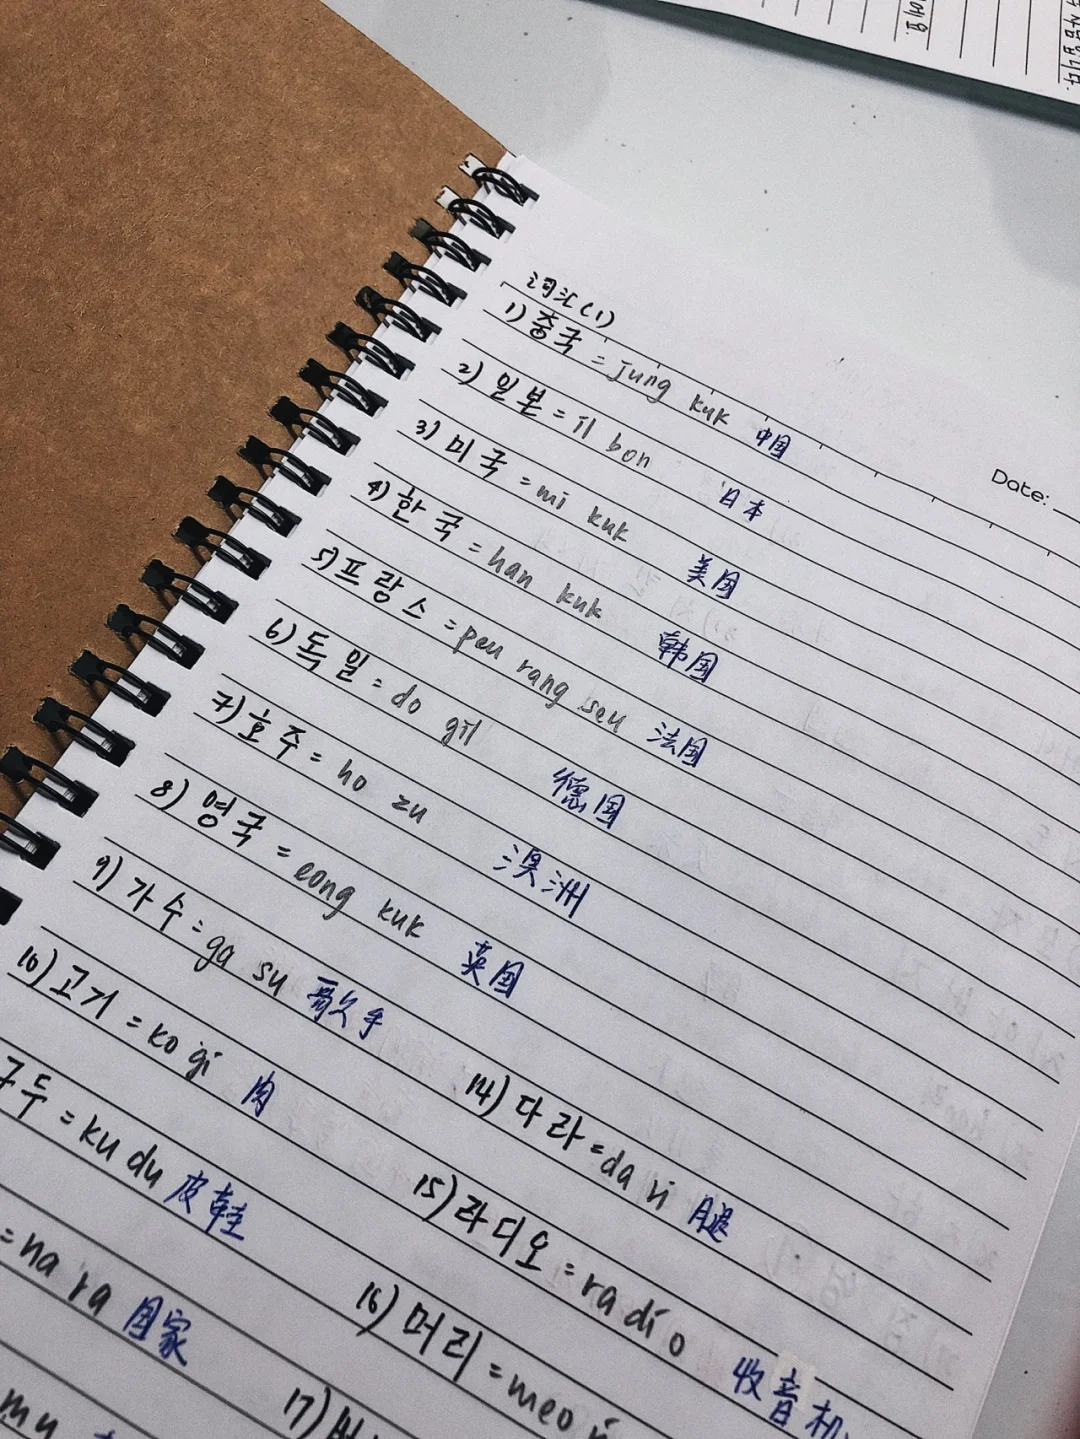 词汇(1)
1) 중국 = jung kuk 中国
2) 일본 = il bon 日本
3) 미국 = mi kuk 美国
4) 한국 = han kuk 韩国
5) 프랑스 = peu rang seu 法国
6) 독일 = do gil 德国
7) 호주 = ho zu 澳洲
8) 영국 = eong kuk 英国
9) 가수 = ga su 歌手
10) 고기 = ko gi 肉
구두 = ku du 皮鞋
= na ra 国家
mu
14) 다리 = da ri 腿
15) 라디오 = ra di o 收音机
16) 머리 = meo
17)
Date: